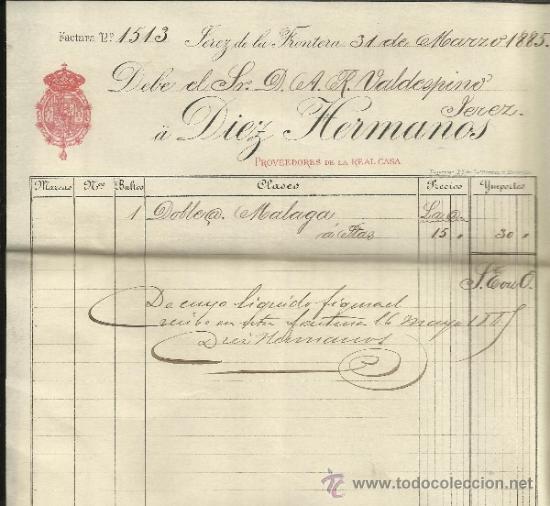 Factura Nº 1513 Jerez de la Frontera 31 de Marzo 1885.
Debe el Sr. D. A. R. Valdespino
Jerez.
á Diez Hermanos
PROVEEDORES DE LA REAL CASA
Marcas Nos Bultos Clases Precios Ymportes
1 Doble @. Malaga La @.
á Ptas 15 " 30 "
S. E. ou O.
De cuyo liquido firma el
recibo en Jerez 16 Mayo 1885
Diez Hermanos
todocoleccion
www.todocoleccion.net